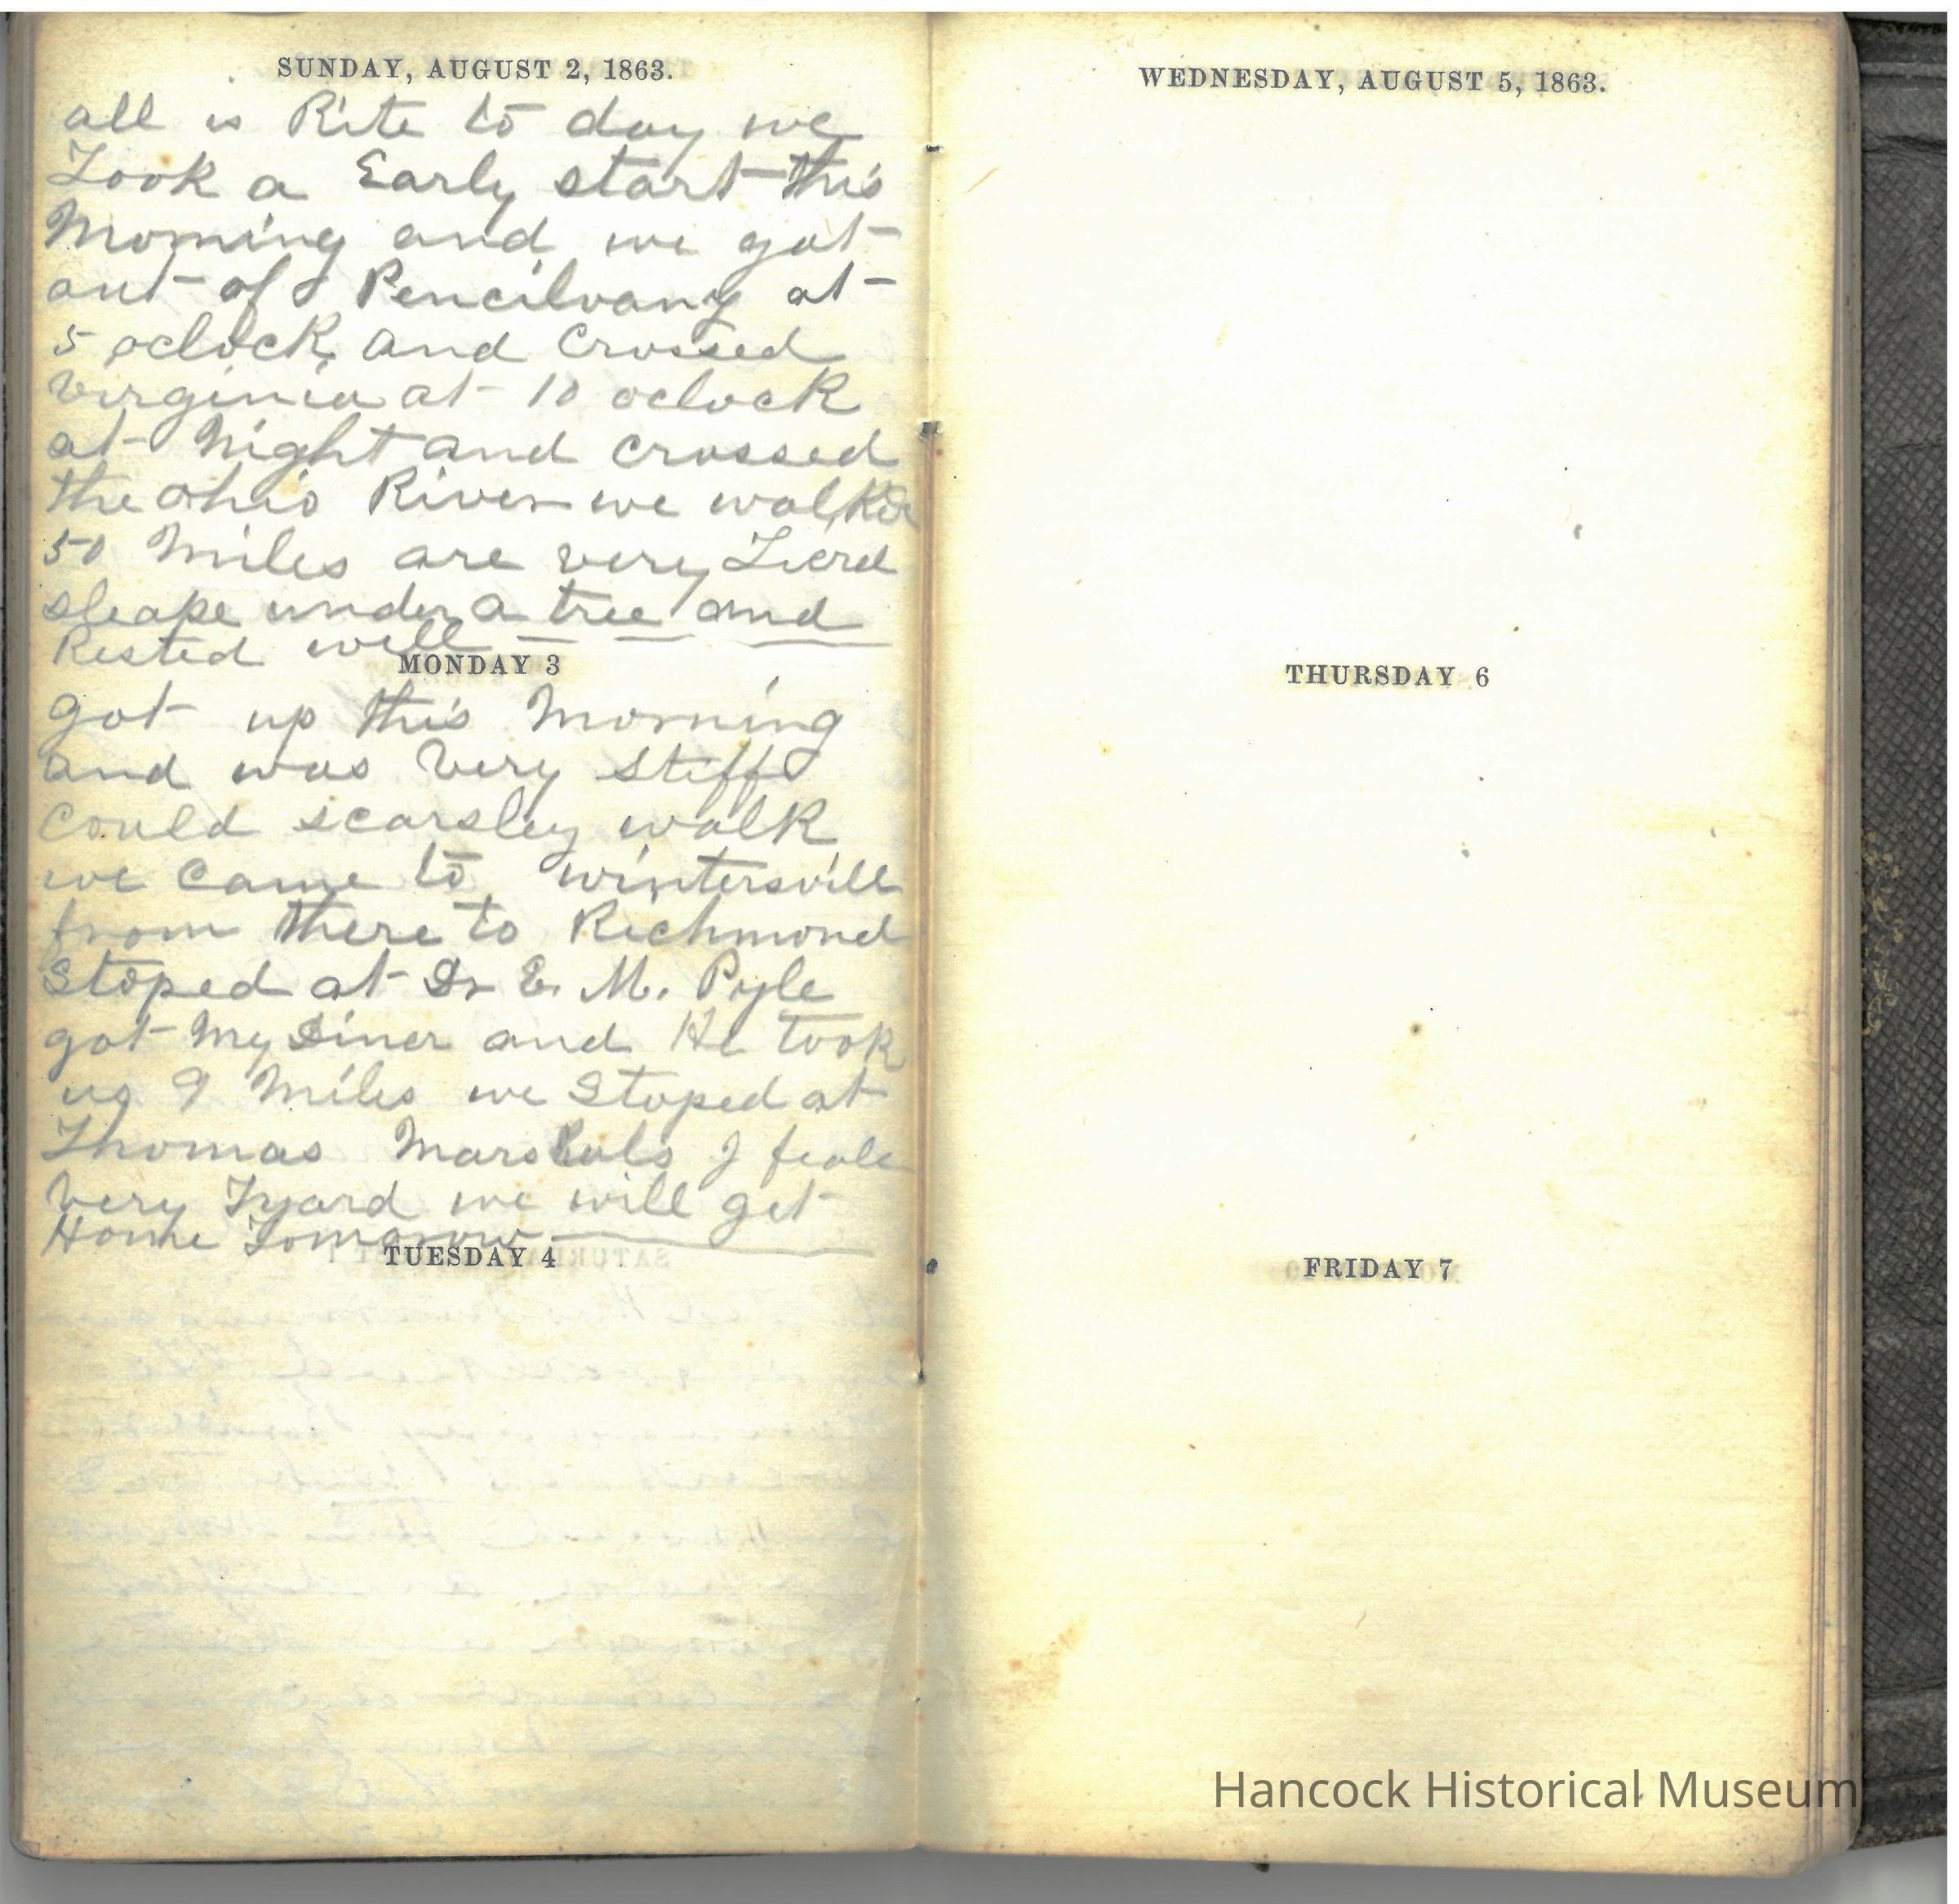 SUNDAY, AUGUST 2, 1863.
all is Rite to day we
Took a Early start this
Morning and we got
out of Pencilvany at
5 oclock and Crossed
Virginia at 10 oclock
at Night and crossed
the ohio River we walked
50 Miles are very Tierd
sleape under a tree and
Rested well
MONDAY 3
got up this Morning
and was very stiff
Could scarsley walk
we came to wintersvill
from there to Richmond
Stoped at Dr E. M. Pyle
got My Diner and He took
us 9 Miles we Stoped at
Thomas Marshals I feale
very Tyard we will get
Home Tomorow
TUESDAY 4
WEDNESDAY, AUGUST 5, 1863.
THURSDAY 6
FRIDAY 7
Hancock Historical Museum